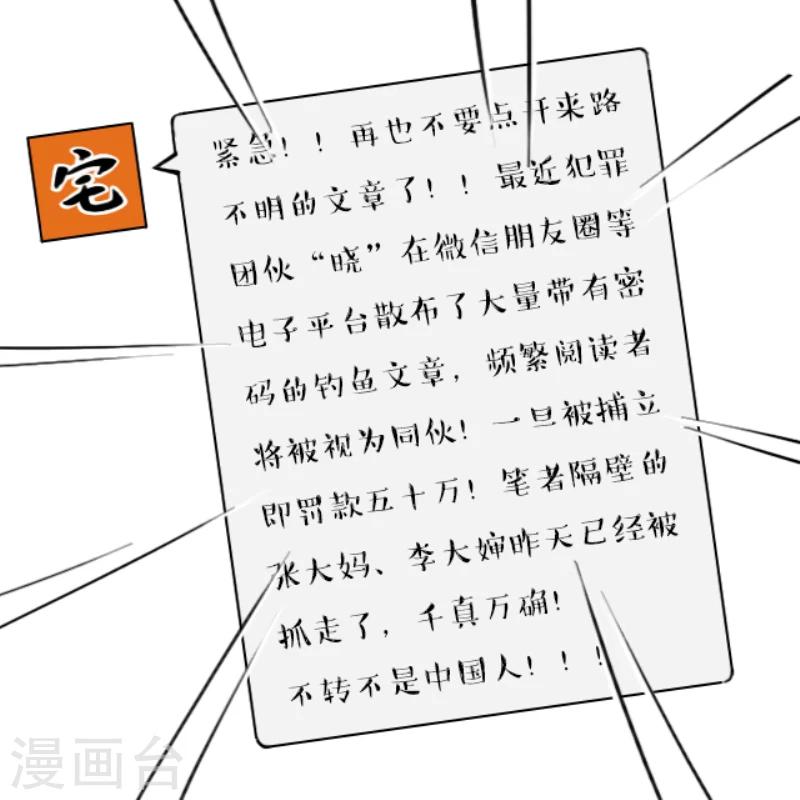 宅
紧急！！再也不要点开来路
不明的文章了！！最近犯罪
团伙“晓”在微信朋友圈等
电子平台散布了大量带有密
码的钓鱼文章，频繁阅读者
将被视为同伙！一旦被捕立
即罚款五十万！笔者隔壁的
张大妈、李大婶昨天已经被
抓走了，千真万确！
不转不是中国人！！！
漫画台